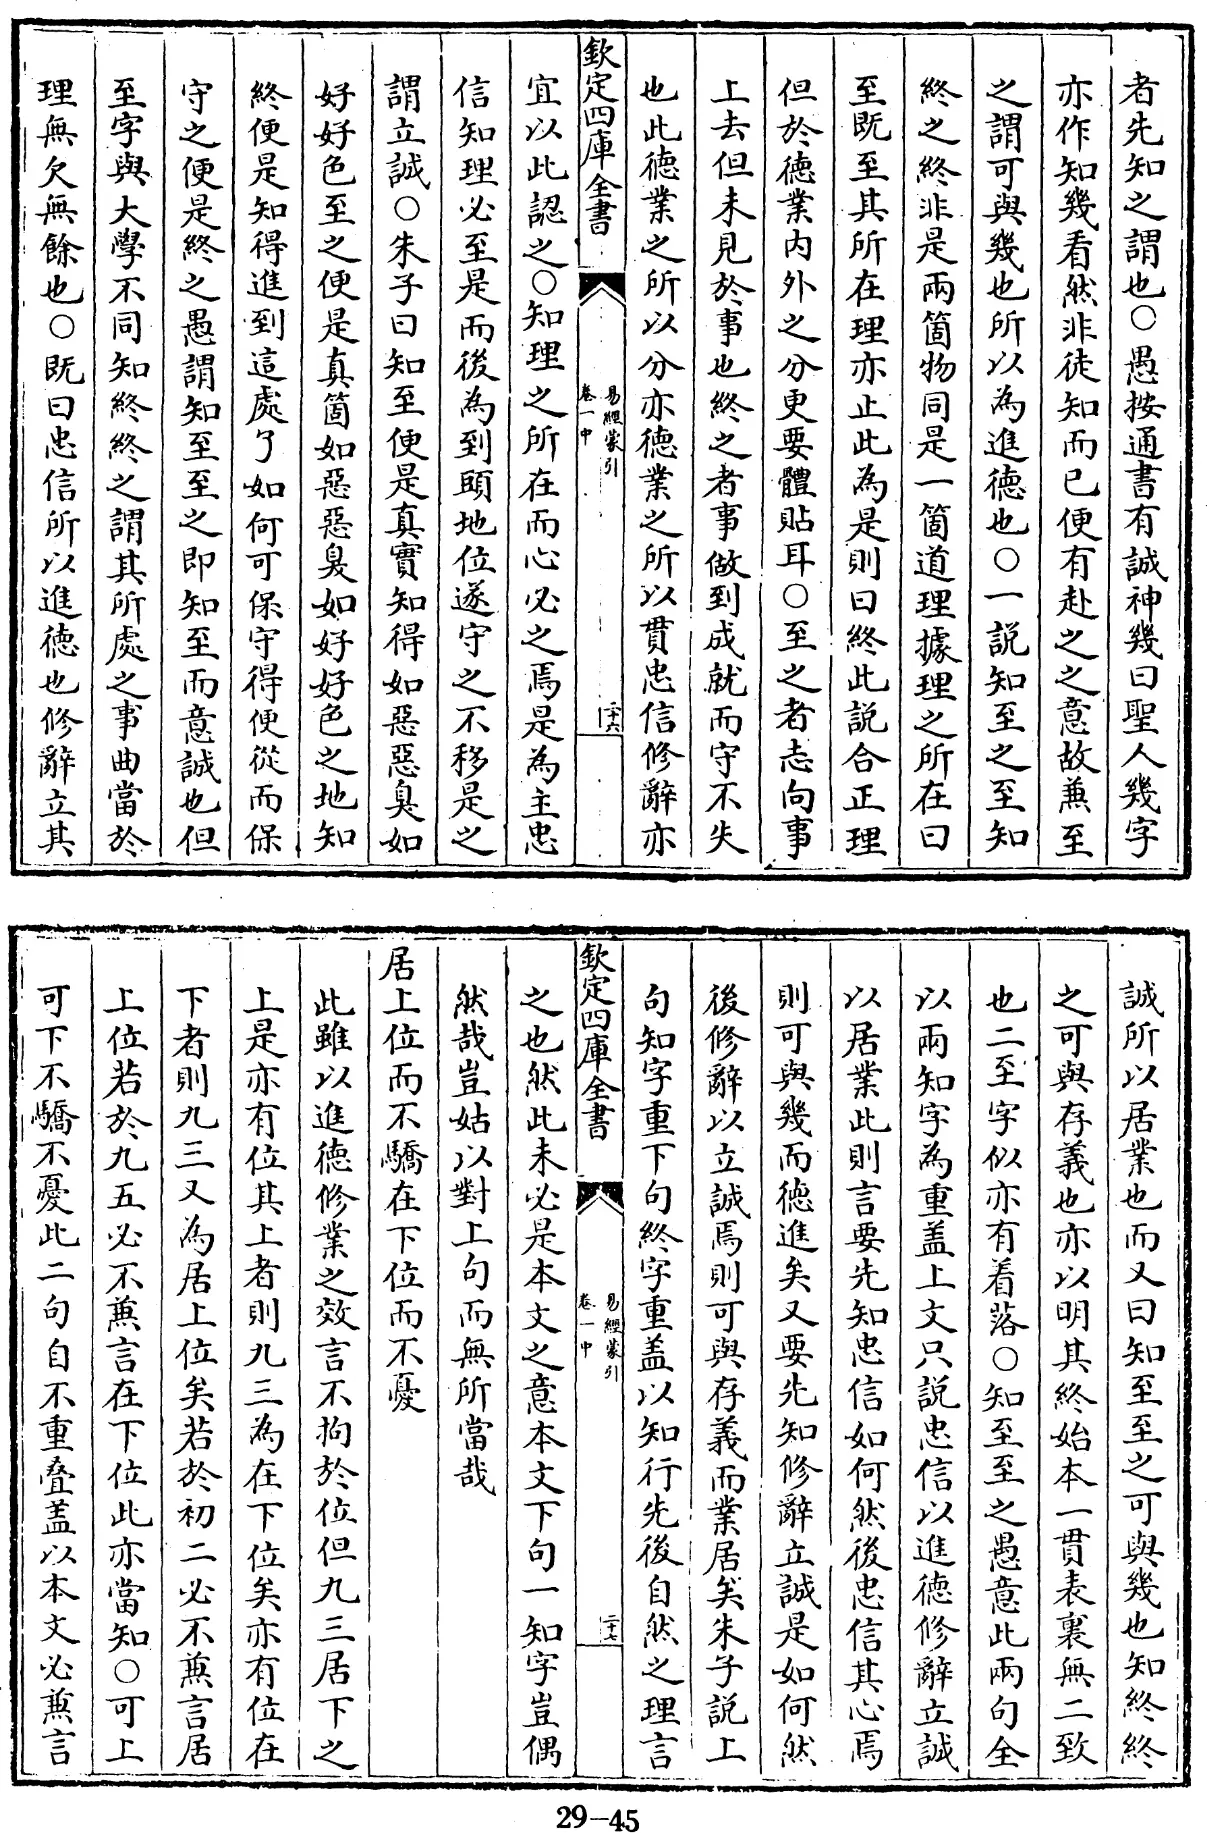 者先知之謂也○愚按通書有誠神幾曰聖人幾字
亦作知幾看然非徒知而已便有赴之之意故兼至
之謂可與幾也所以為進德也○一説知至之至知
終之終非是兩箇物同是一箇道理據理之所在曰
至既至其所在理亦止此為是則曰終此説合正理
但於德業內外之分更要體貼耳○至之者志向事
上去但未見於事也終之者事做到成就而守不失
也此德業之所以分亦德業之所以貫忠信修辭亦
欽定四庫全書
易經蒙引
卷一中
二十六
宜以此認之○知理之所在而心必之焉是為主忠
信知理必至是而後為到頭地位遂守之不移是之
謂立誠○朱子曰知至便是真實知得如惡惡臭如
好好色至之便是真箇如惡惡臭如好好色之地知
終便是知得進到這處了如何可保守得便從而保
守之便是終之愚謂知至至之即知至而意誠也但
至字與大學不同知終終之謂其所處之事曲當於
理無欠無餘也○既曰忠信所以進德也修辭立其
誠所以居業也而又曰知至至之可與幾也知終終
之可與存義也亦以明其終始本一貫表裏無二致
也二至字似亦有着落○知至至之愚意此兩句全
以兩知字為重盖上文只説忠信以進德修辭立誠
以居業此則言要先知忠信如何然後忠信其心焉
則可與幾而德進矣又要先知修辭立誠是如何然
後修辭以立誠焉則可與存義而業居矣朱子説上
句知字重下句終字重盖以知行先後自然之理言
欽定四庫全書
易經蒙引
卷一中
二十七
之也然此未必是本文之意本文下句一知字豈偶
然哉豈姑以對上句而無所當哉
居上位而不驕在下位而不憂
此雖以進德修業之效言不拘於位但九三居下之
上是亦有位其上者則九三為在下位矣亦有位在
下者則九三又為居上位矣若於初二必不兼言居
上位若於九五必不兼言在下位此亦當知○可上
可下不驕不憂此二句自不重叠盖以本文必兼言
29-45